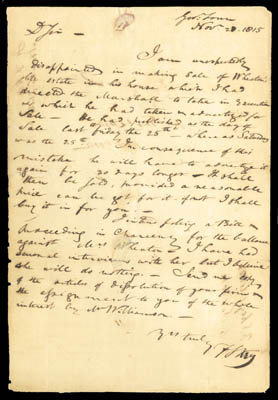 Geo: Town
Nov 28. 1815
D Sir –
I am unexpectedly
disappointed in making Sale of Wheaton's
life estate in his house which I had
directed the Marshall to take in Execution
& which he had taken in & advertized for
Sale – He had published as the day of
Sale last friday the 25th whereas Saturday
was the 25th In consequence of this
mistake he will have to advertize it
again for 20 days longer – It shall
then be sold, provided a reasonable
price can be got for it & not I shall
buy it in for you –
I intend filing a Bill &
proceeding in Chancery for the balance
against Mrs Wheaton. I have had
several interviews with her but I believe
she will do nothing – Send me copy
of the articles of dissolution of your firm &
the assignment to you of the whole
interest by Mr Williamson –
Yrs truly
F S Key